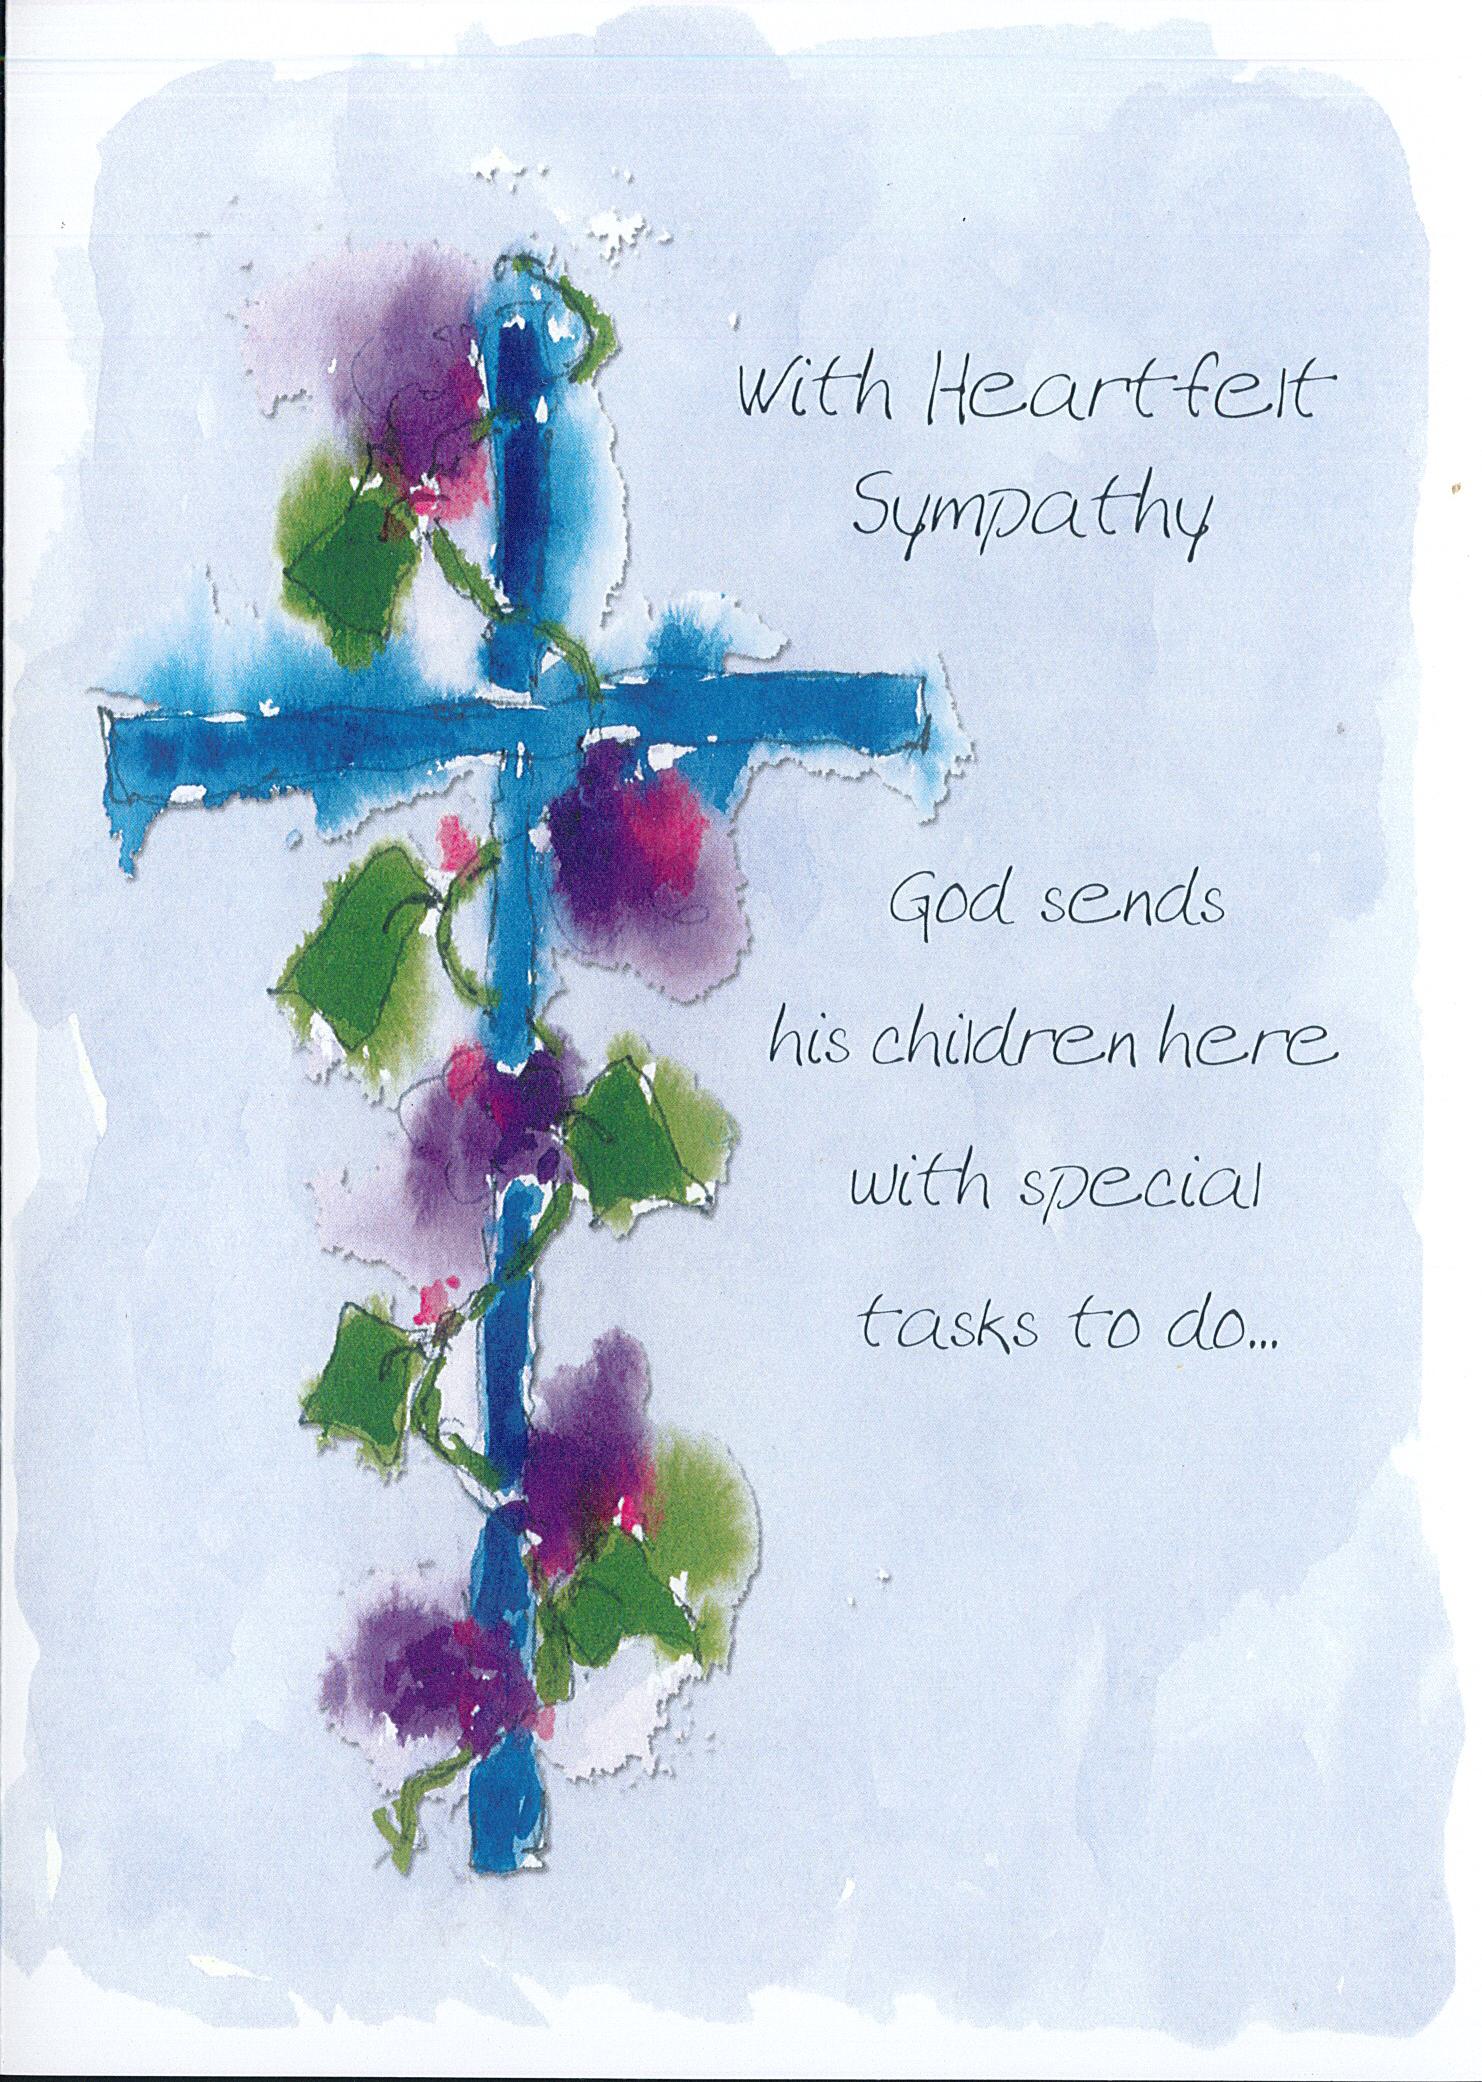 With Heartfelt
Sympathy
God sends
his children here
with special
tasks to do...